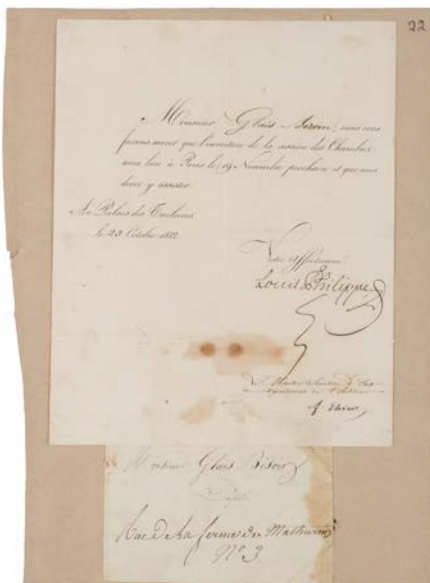 22
Monsieur Glais Bizoin, nous vous
faisons savoir que l'ouverture de la session des Chambres
aura lieu à Paris le 19 Novembre prochain et que vous
devez y assister.
Au Palais des Tuileries
le 23 Octobre 1832
Votre affectionné
Louis Philippe
Le Ministre Secrétaire d'Etat
A. Thiers
Monsieur Glais Bizoin
Député
Rue De La ferme des Mathurins
N° 3.